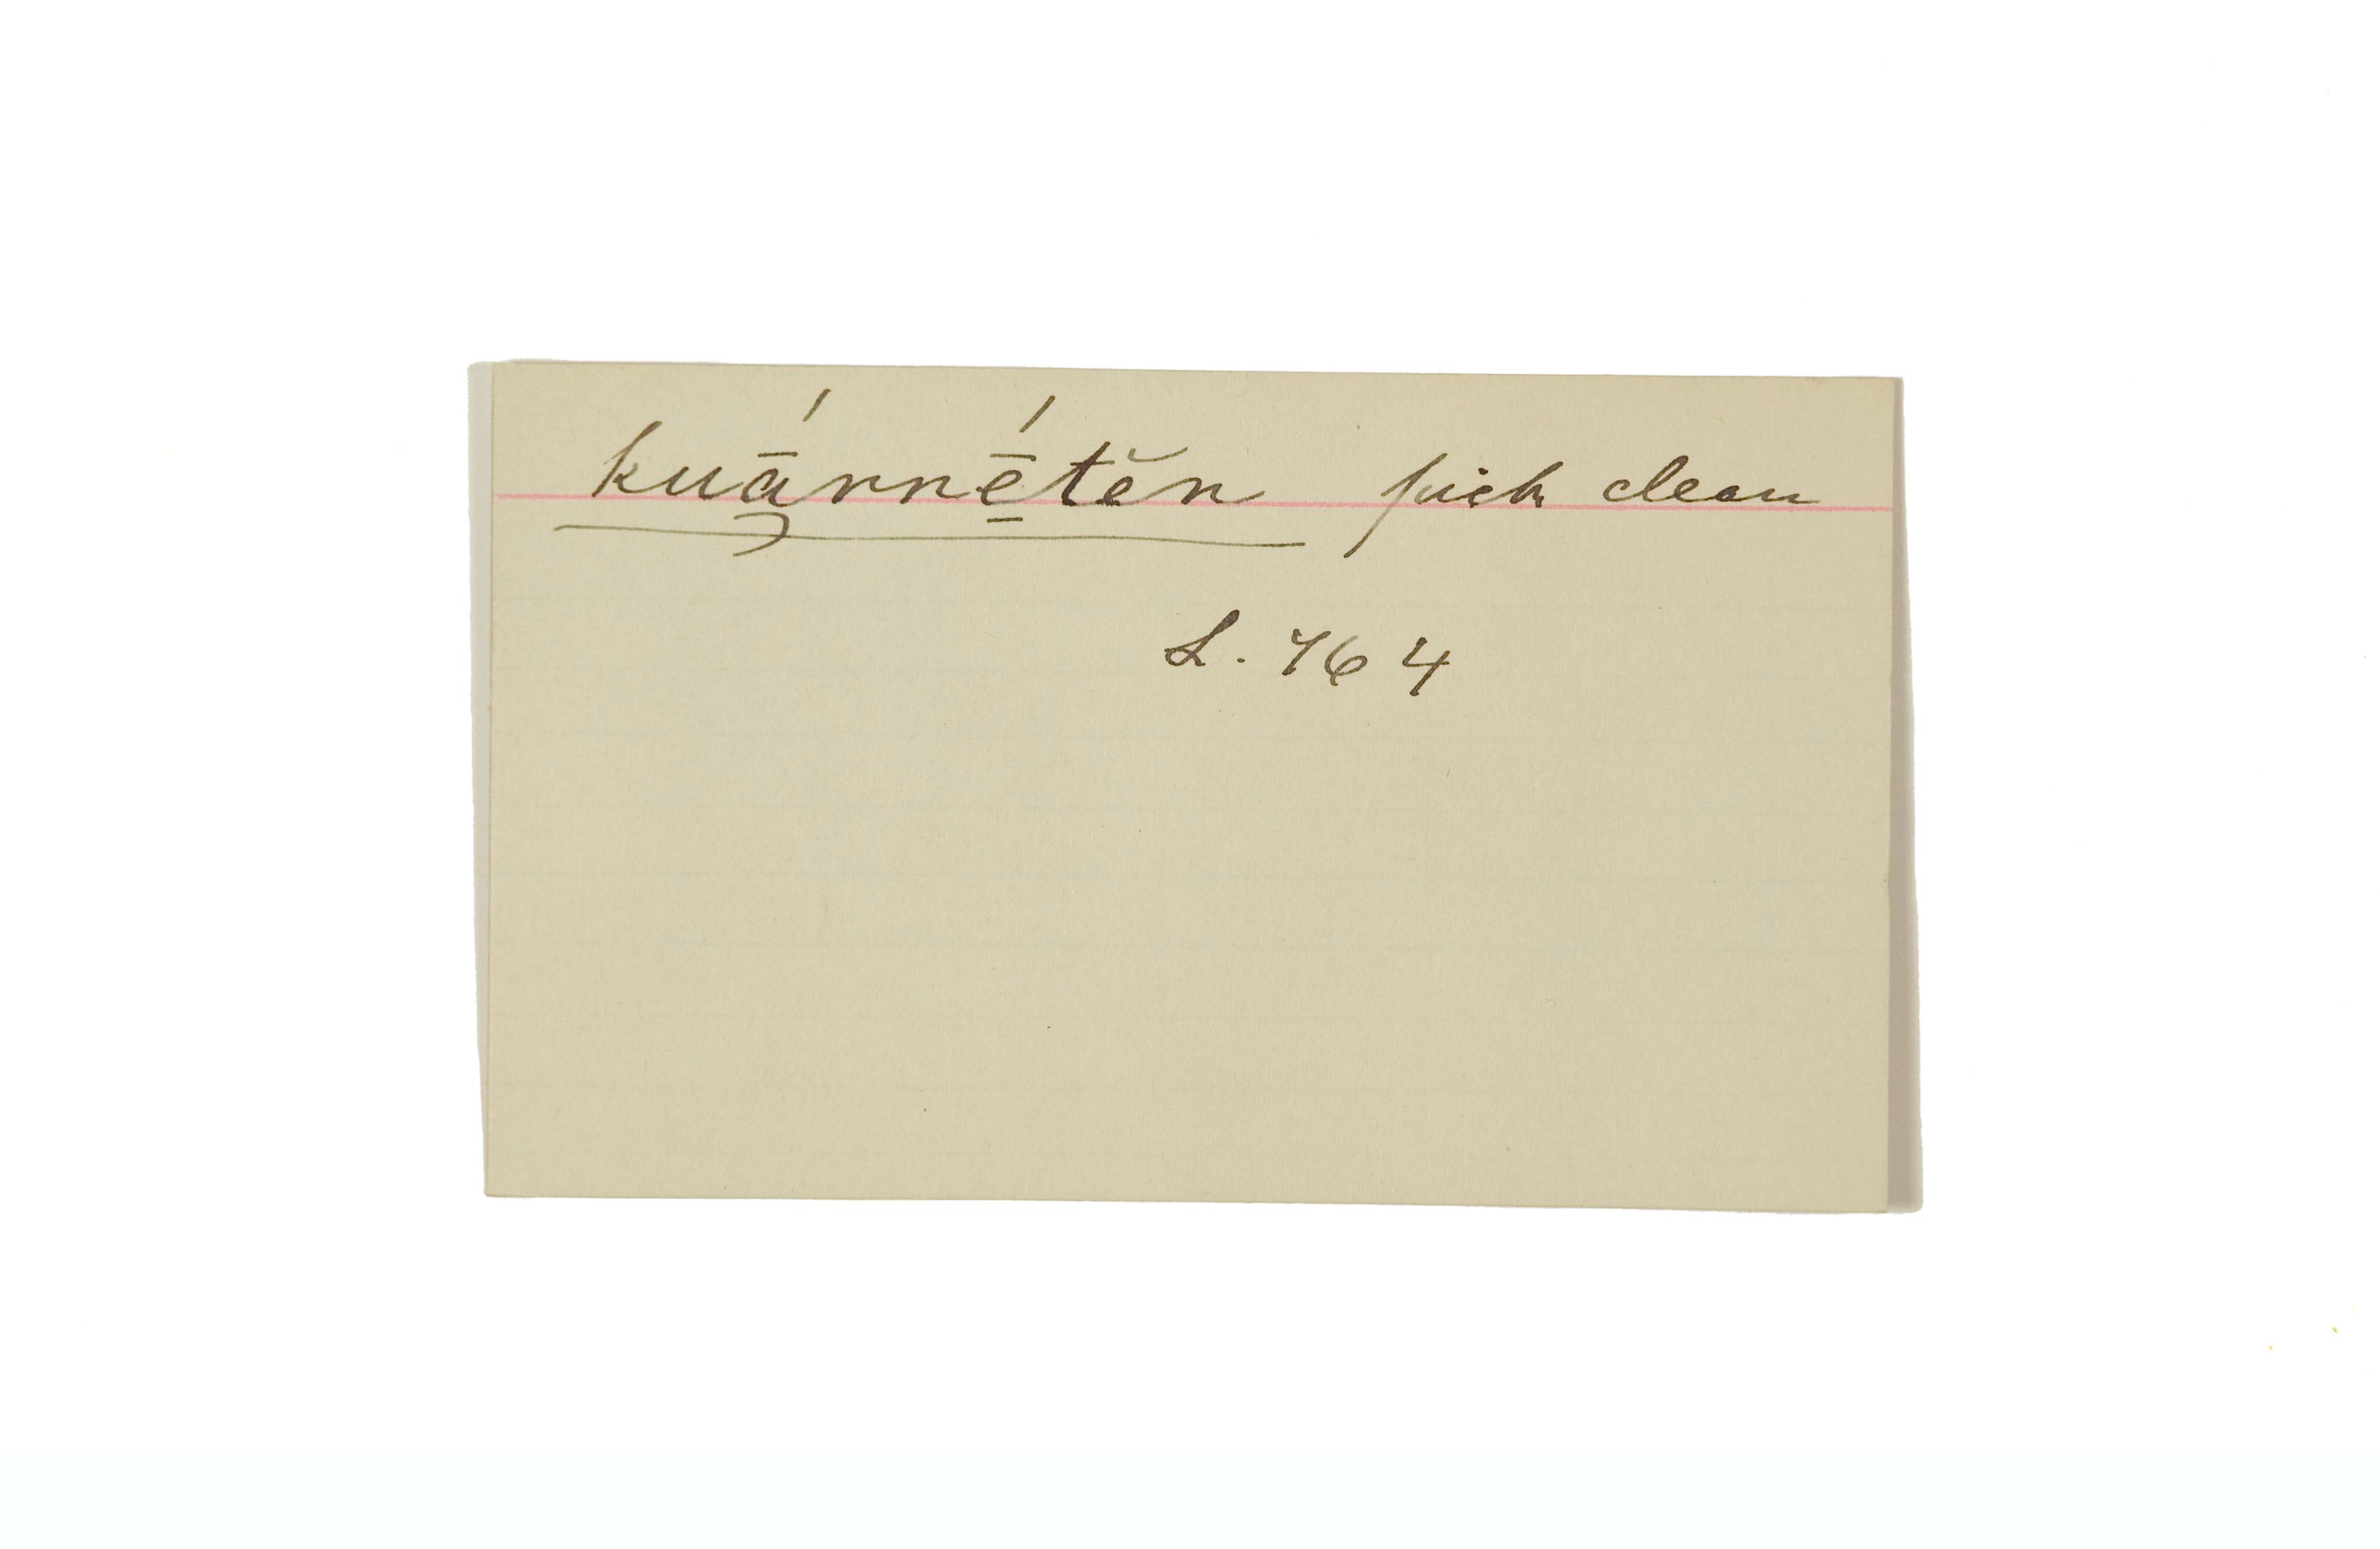 kuą̄́rnḗ̱tĕn pick clean
L. 764